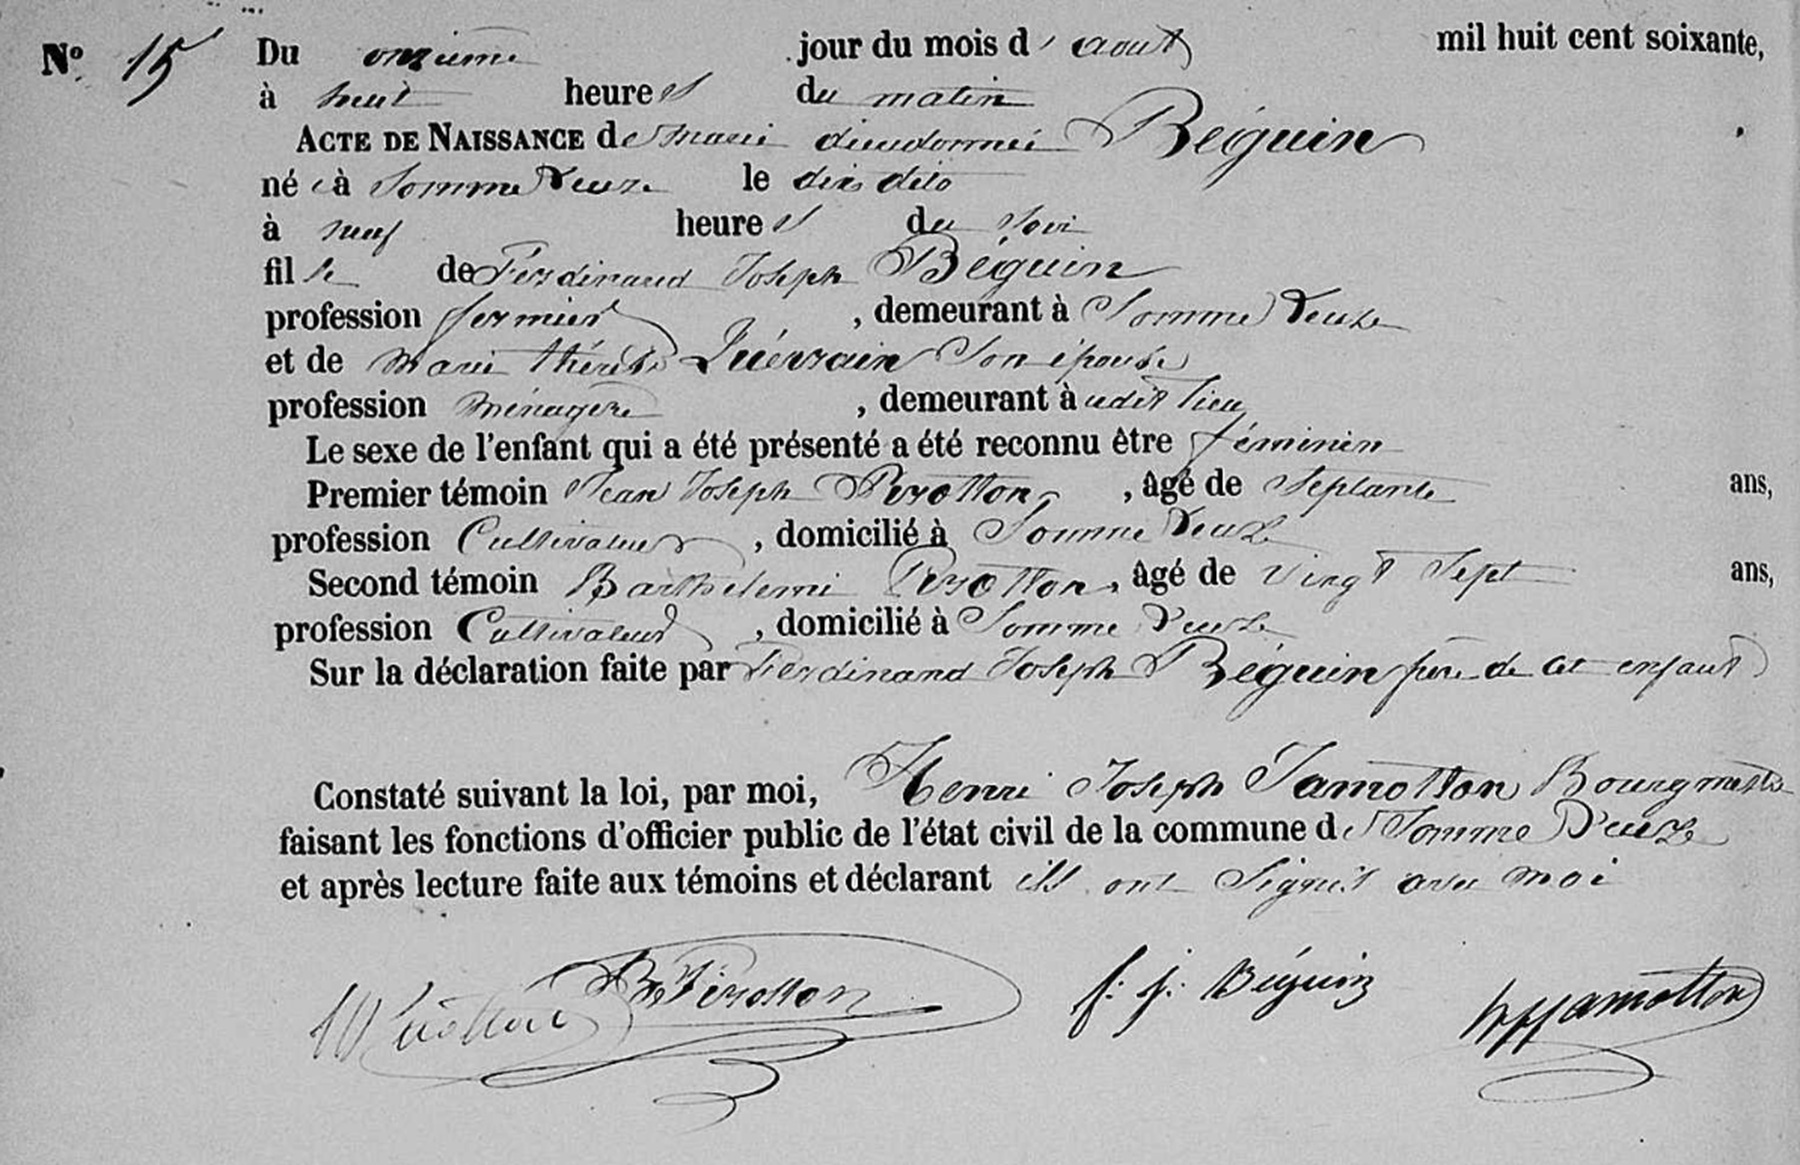 Nº 15 Du onzieme jour du mois d'aout mil huit cent soixante,
à huit heures du matin
ACTE DE NAISSANCE de Marie dieudonnée Béguin
née à Somme Leuze le dix dito
à neuf heures du Soir
fille de Ferdinand Joseph Béguin
profession fermier, demeurant à Somme Leuze
et de Marie thérèse Quévrain Son épouse
profession ménagère, demeurant à udit lieu
Le sexe de l'enfant qui a été présenté a été reconnu être féminin
Premier témoin Jean Joseph Pirotton, âgé de Septante ans,
profession Cultivateur, domicilié à Somme Leuze
Second témoin Barthélemi Pirotton, âgé de Vingt Sept ans,
profession Cultivateur, domicilié à Somme Leuze
Sur la déclaration faite par Ferdinand Joseph Béguin père de cet enfant
Constaté suivant la loi, par moi, Henri Joseph Jamotton Bourgmestre
faisant les fonctions d'officier public de l'état civil de la commune de Somme Leuze
et après lecture faite aux témoins et déclarant ils ont Signés avec moi
B. Pirotton f: j: Béguin hjjamotton